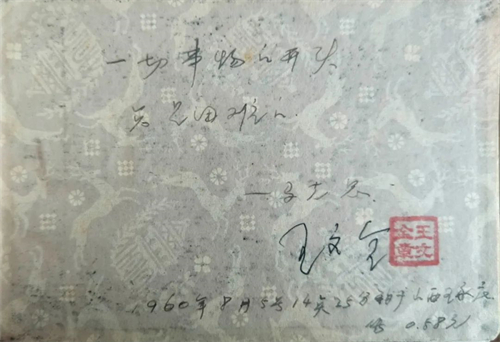 一切事物的开头
总是困难的.
—马克思.
王文金
王文金章
1960年8月5号14点25分购于山西
0.58元